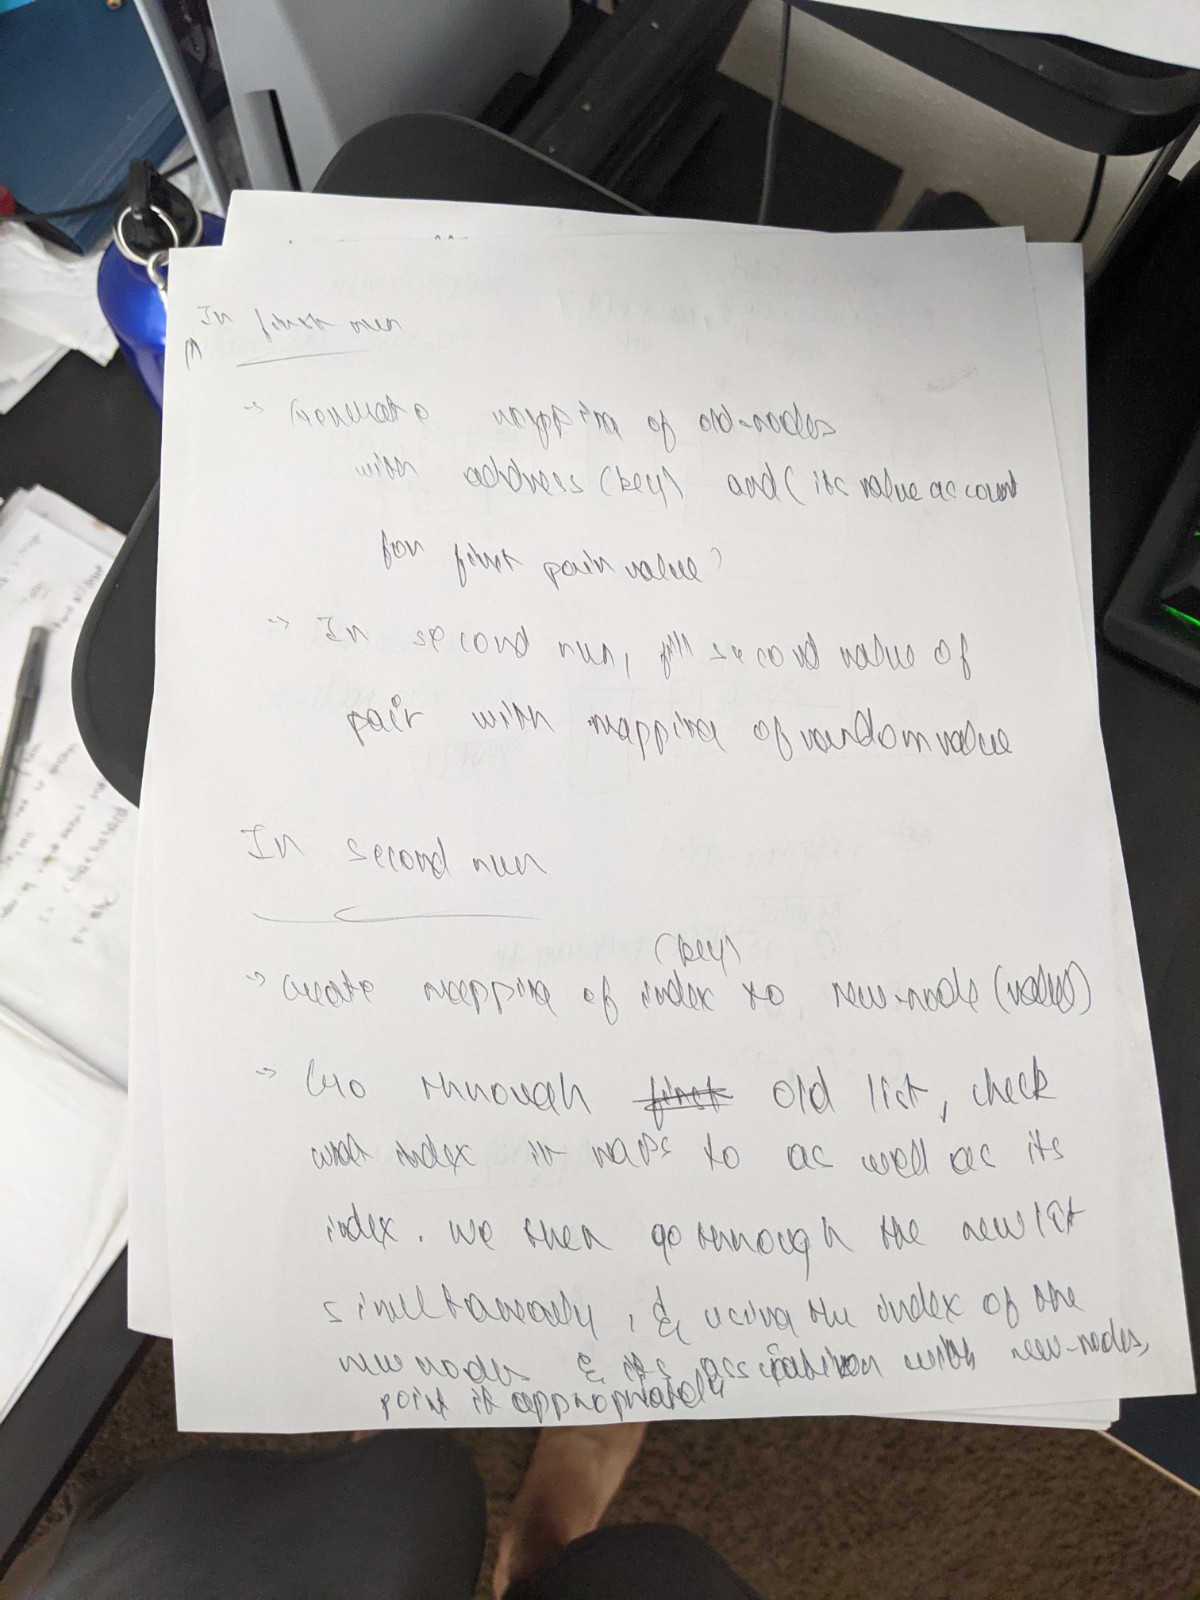 In first run
→ Generate mapping of old-nodes
with address (key) and (its value as count
for first pair value)
→ In second run, fill second value of
pair with mapping of random value
In second run
(key)
→ create mapping of index to new-node (value)
→ Go through first old list, check
what index it maps to as well as its
index. We then go through the new list
simultaneously, & using the index of the
new nodes & its association with new-nodes,
point it appropriately